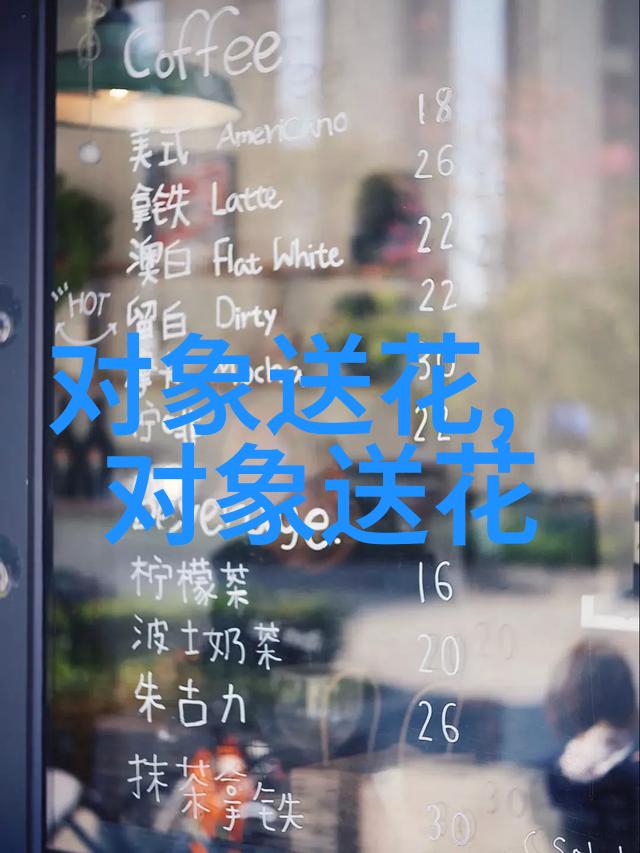 Coffee
美式 Americano 18
拿铁 Latte 26
澳白 Flat White 22
HOT
留白 Dirty 22
Mocha 30
对象送花,
22
对象送花
Beverage.
柠檬茶 16
波士奶茶 20
朱古力 26
抹茶拿铁 30